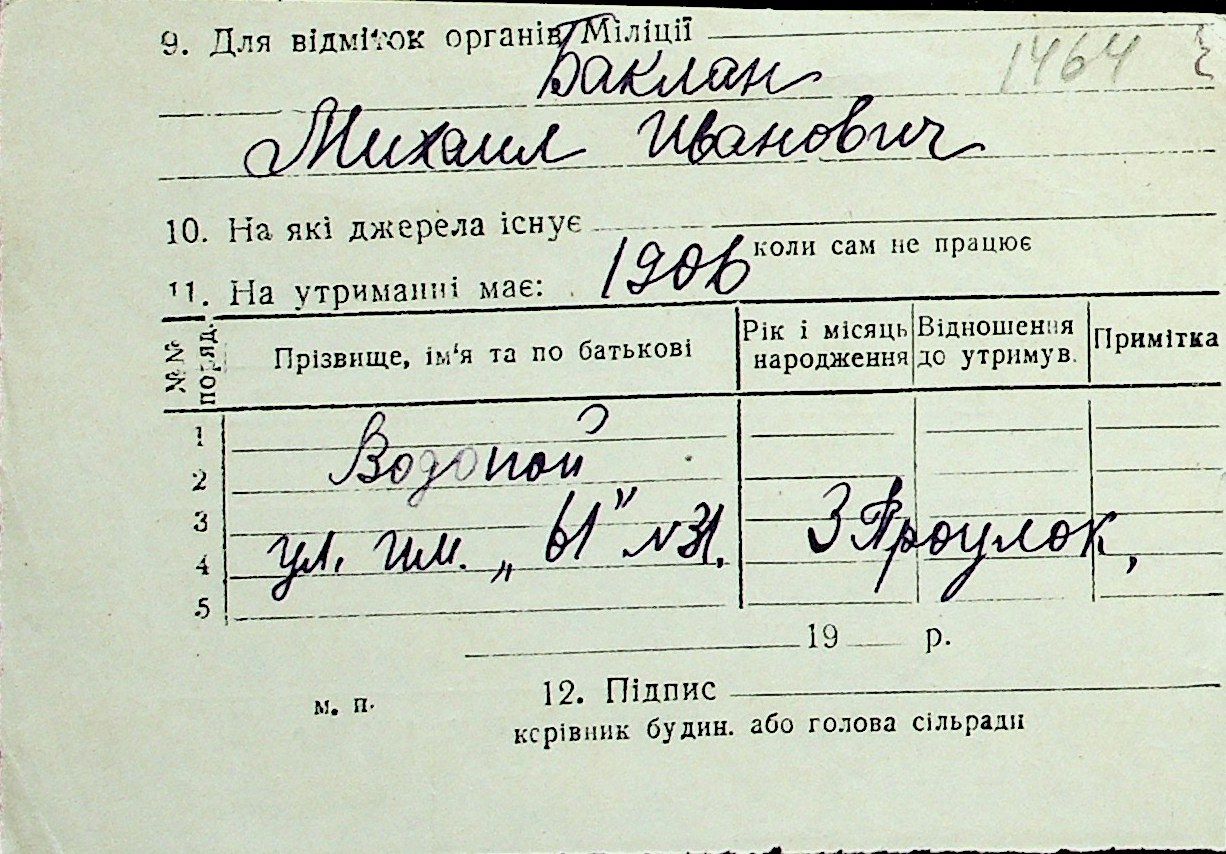 9. Для відміток органів Міліції
1464
Баклан
Михаил Иванович
10. На які джерела існує
коли сам не працює
11. На утриманні має: 1906
№№ поряд.
Прізвище, ім'я та по батькові
Рік і місяць народження
Відношення до утримув.
Примітка
1
2 Водопой
3
4 ул. им. „61" №31, 3 Проулок,
5
19 р.
м. п.
12. Підпис
керівник будин. або голова сільради